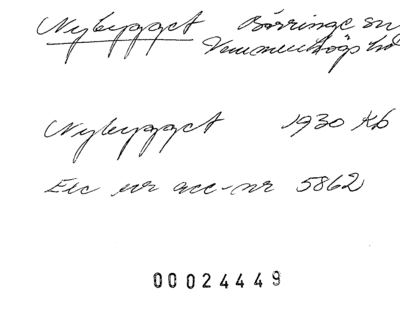 Nybygget Börringe sn
Vemmenhögs hd
Nybygget 1930 Kb
Exc ur acc-nr 5862
00024449